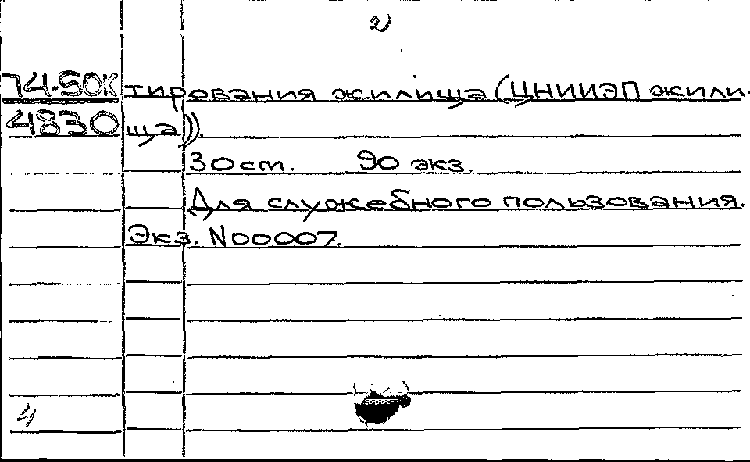 2)
74-50К тирования жилища (ЦНИИЭП жили-
4830 ща)).
30 ст. 90 экз.
Для служебного пользования.
Экз. N00007.
4